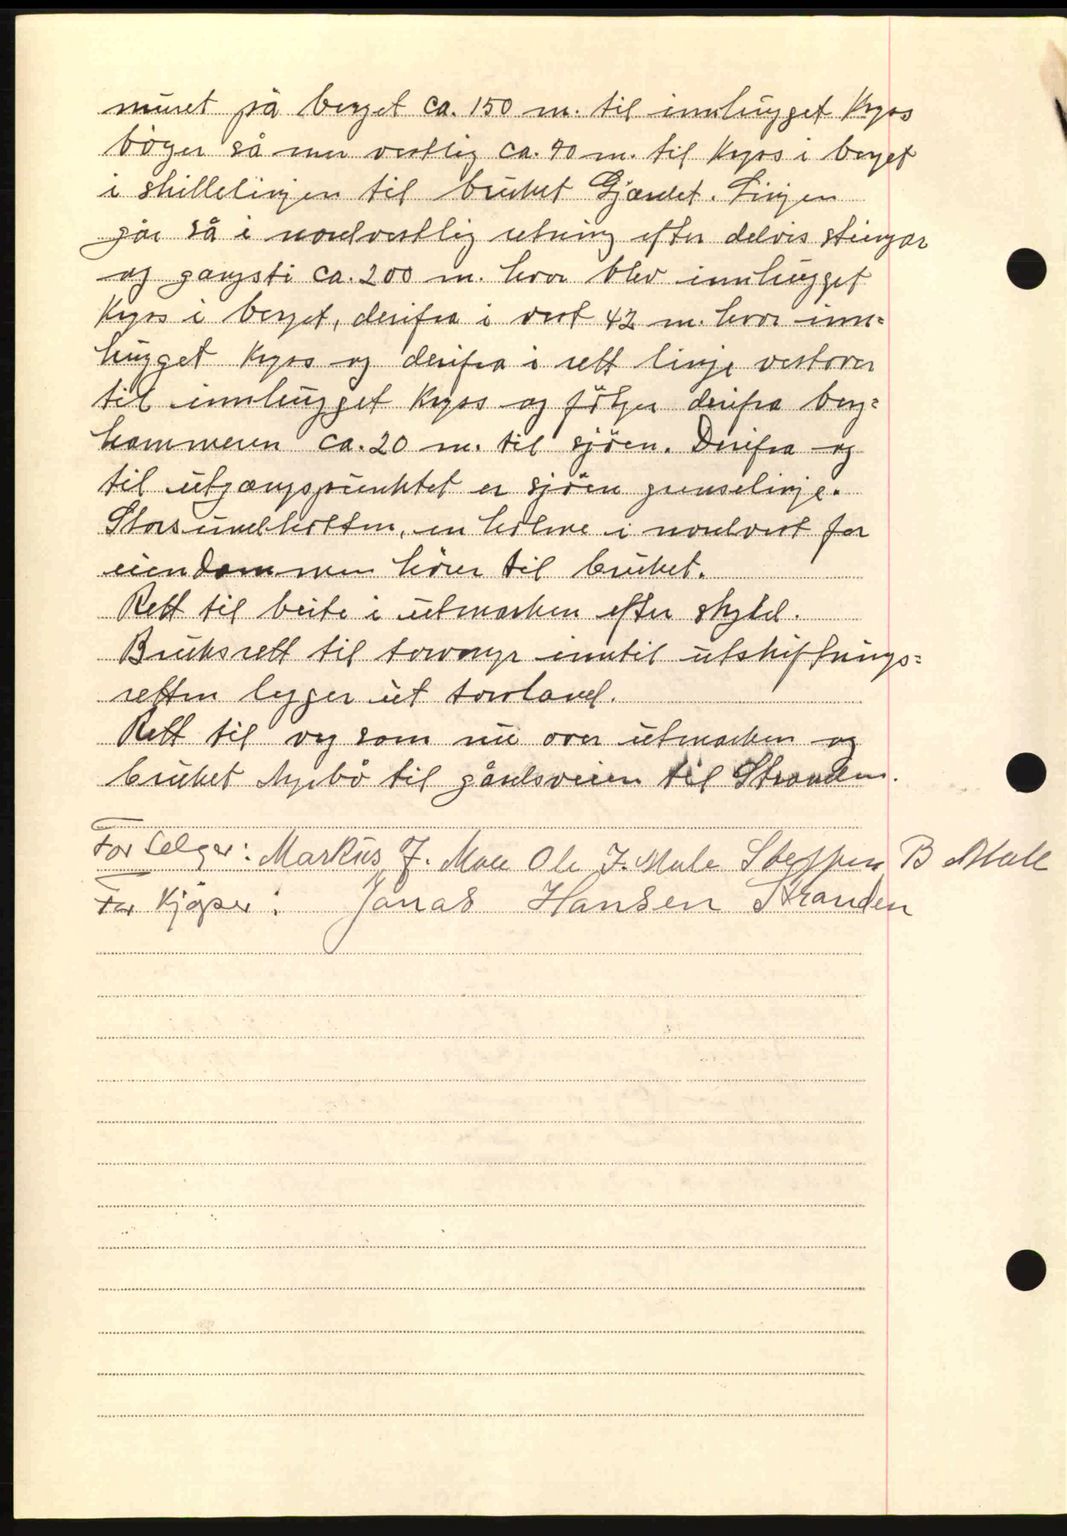 muret på berget ca. 150 m. til innhugget kryss
böyer så mer vestlig ca. 90 m. til kryss i berget
i skillelinjen til bruket Gjærdet. Linjen
går så i nordvestlig retning efter delvis steingar
og gangsti ca. 200 m. hvor blev innhugget
kryss i berget, derifra i vest 42 m. hvor inn=
hugget kryss og derifra i rett linje vestover
til innhugget kryss og fölger derifra berg=
hammeren ca. 20 m. til sjöen. Derifra og
til utgangspunktet er sjöen grenselinje.
Storsundholmen, en holme i nordvest for
eiendommen hörer til bruket.
Rett til beite i utmarken efter skyld.
Bruksrett til torvmyr inntil utskiftnings=
retten legger ut torvland.
Rett til veg som nu over utmarken og
bruket Myrbö til gårdsveien til Stranden.
For Selger: Markus J. Male Ole J. Male Steffen B Male
For Kjöper: Jonas Hansen Stranden